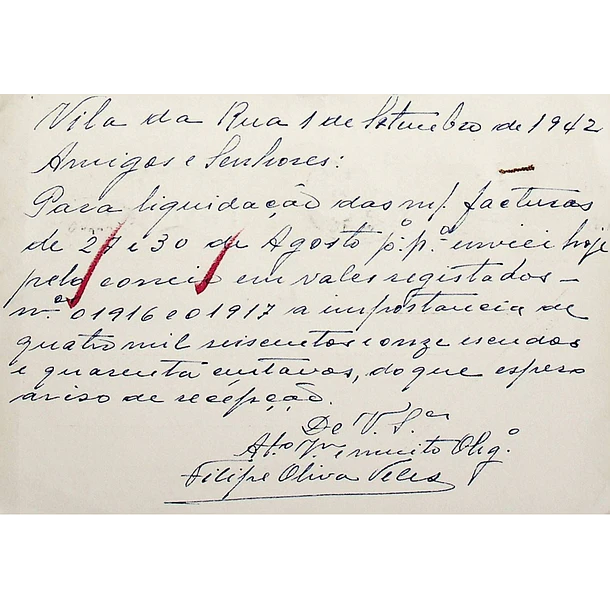 Vila da Rua 1 de Setembro de 1942
Amigos e Senhores:
Para liquidação das m/ facturas
de 27 e 30 de Agosto p.º p.º enviei hoje
pelo correio em vales registados -
n.ºs 01916 e 01917 a importancia de
quatro mil seiscentos e onze escudos
e quarenta centavos, do que espero
aviso de recepção.
De V. S.as
At.º V.or e muito Obg.º
Filipe Oliva Teles